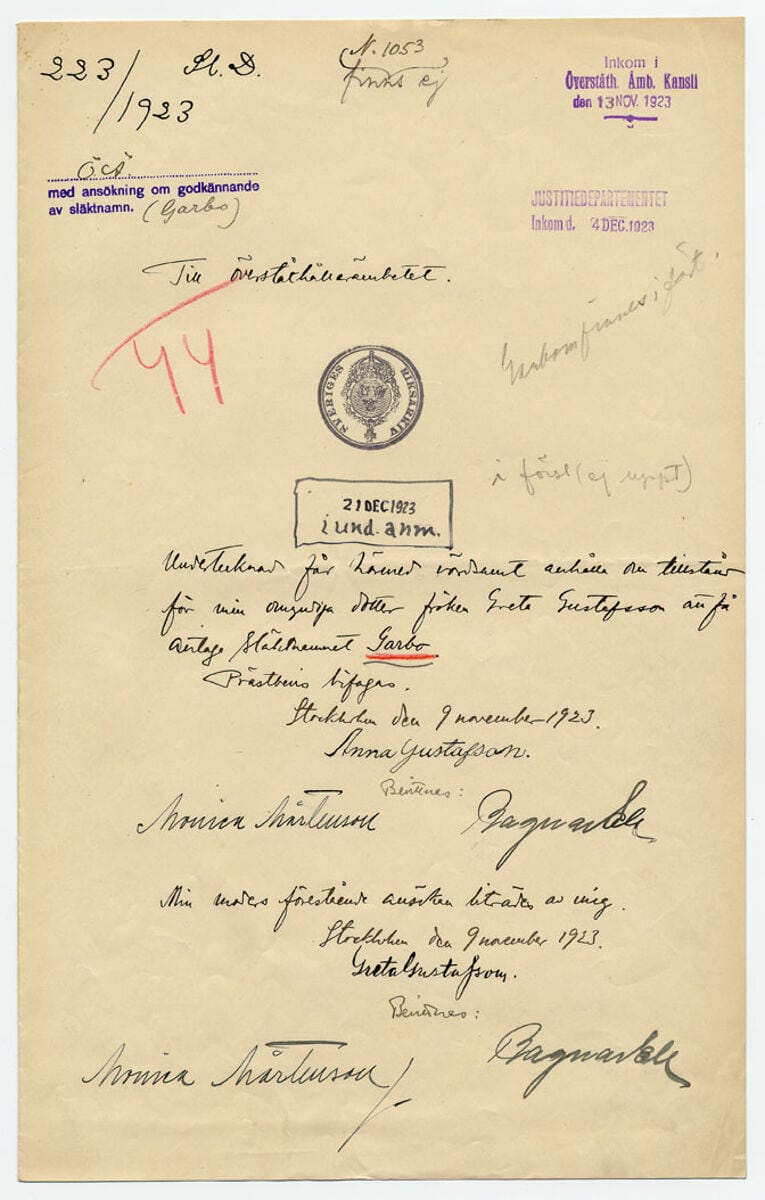 223/1923
St. D.
N. 1053
finns ej
Inkom i
Överståth. Amb. Kansli
den 13 NOV. 1923
ÖÄ.
med ansökning om godkännande
av släktnamn. (Garbo)
JUSTITIEDEPARTEMENTET
Inkom d. 4 DEC. 1923
Till Överståthållareämbetet.
SVERIGES RIKSARKIV
i först (ej uppt)
21 DEC 1923
i und. anm.
Undertecknad får härmed vördsamt anhålla om tillstånd
för min omyndiga dotter fröken Greta Gustafsson att få
antaga släktnamnet Garbo.
Prästbevis bifogas.
Stockholm den 9 november 1923.
Anna Gustafsson.
Bevittnes:
Monica Mårtenson
Min moders förestående ansökan biträdes av mig.
Stockholm den 9 november 1923.
Greta Gustafsson.
Bevittnes:
Monica Mårtenson